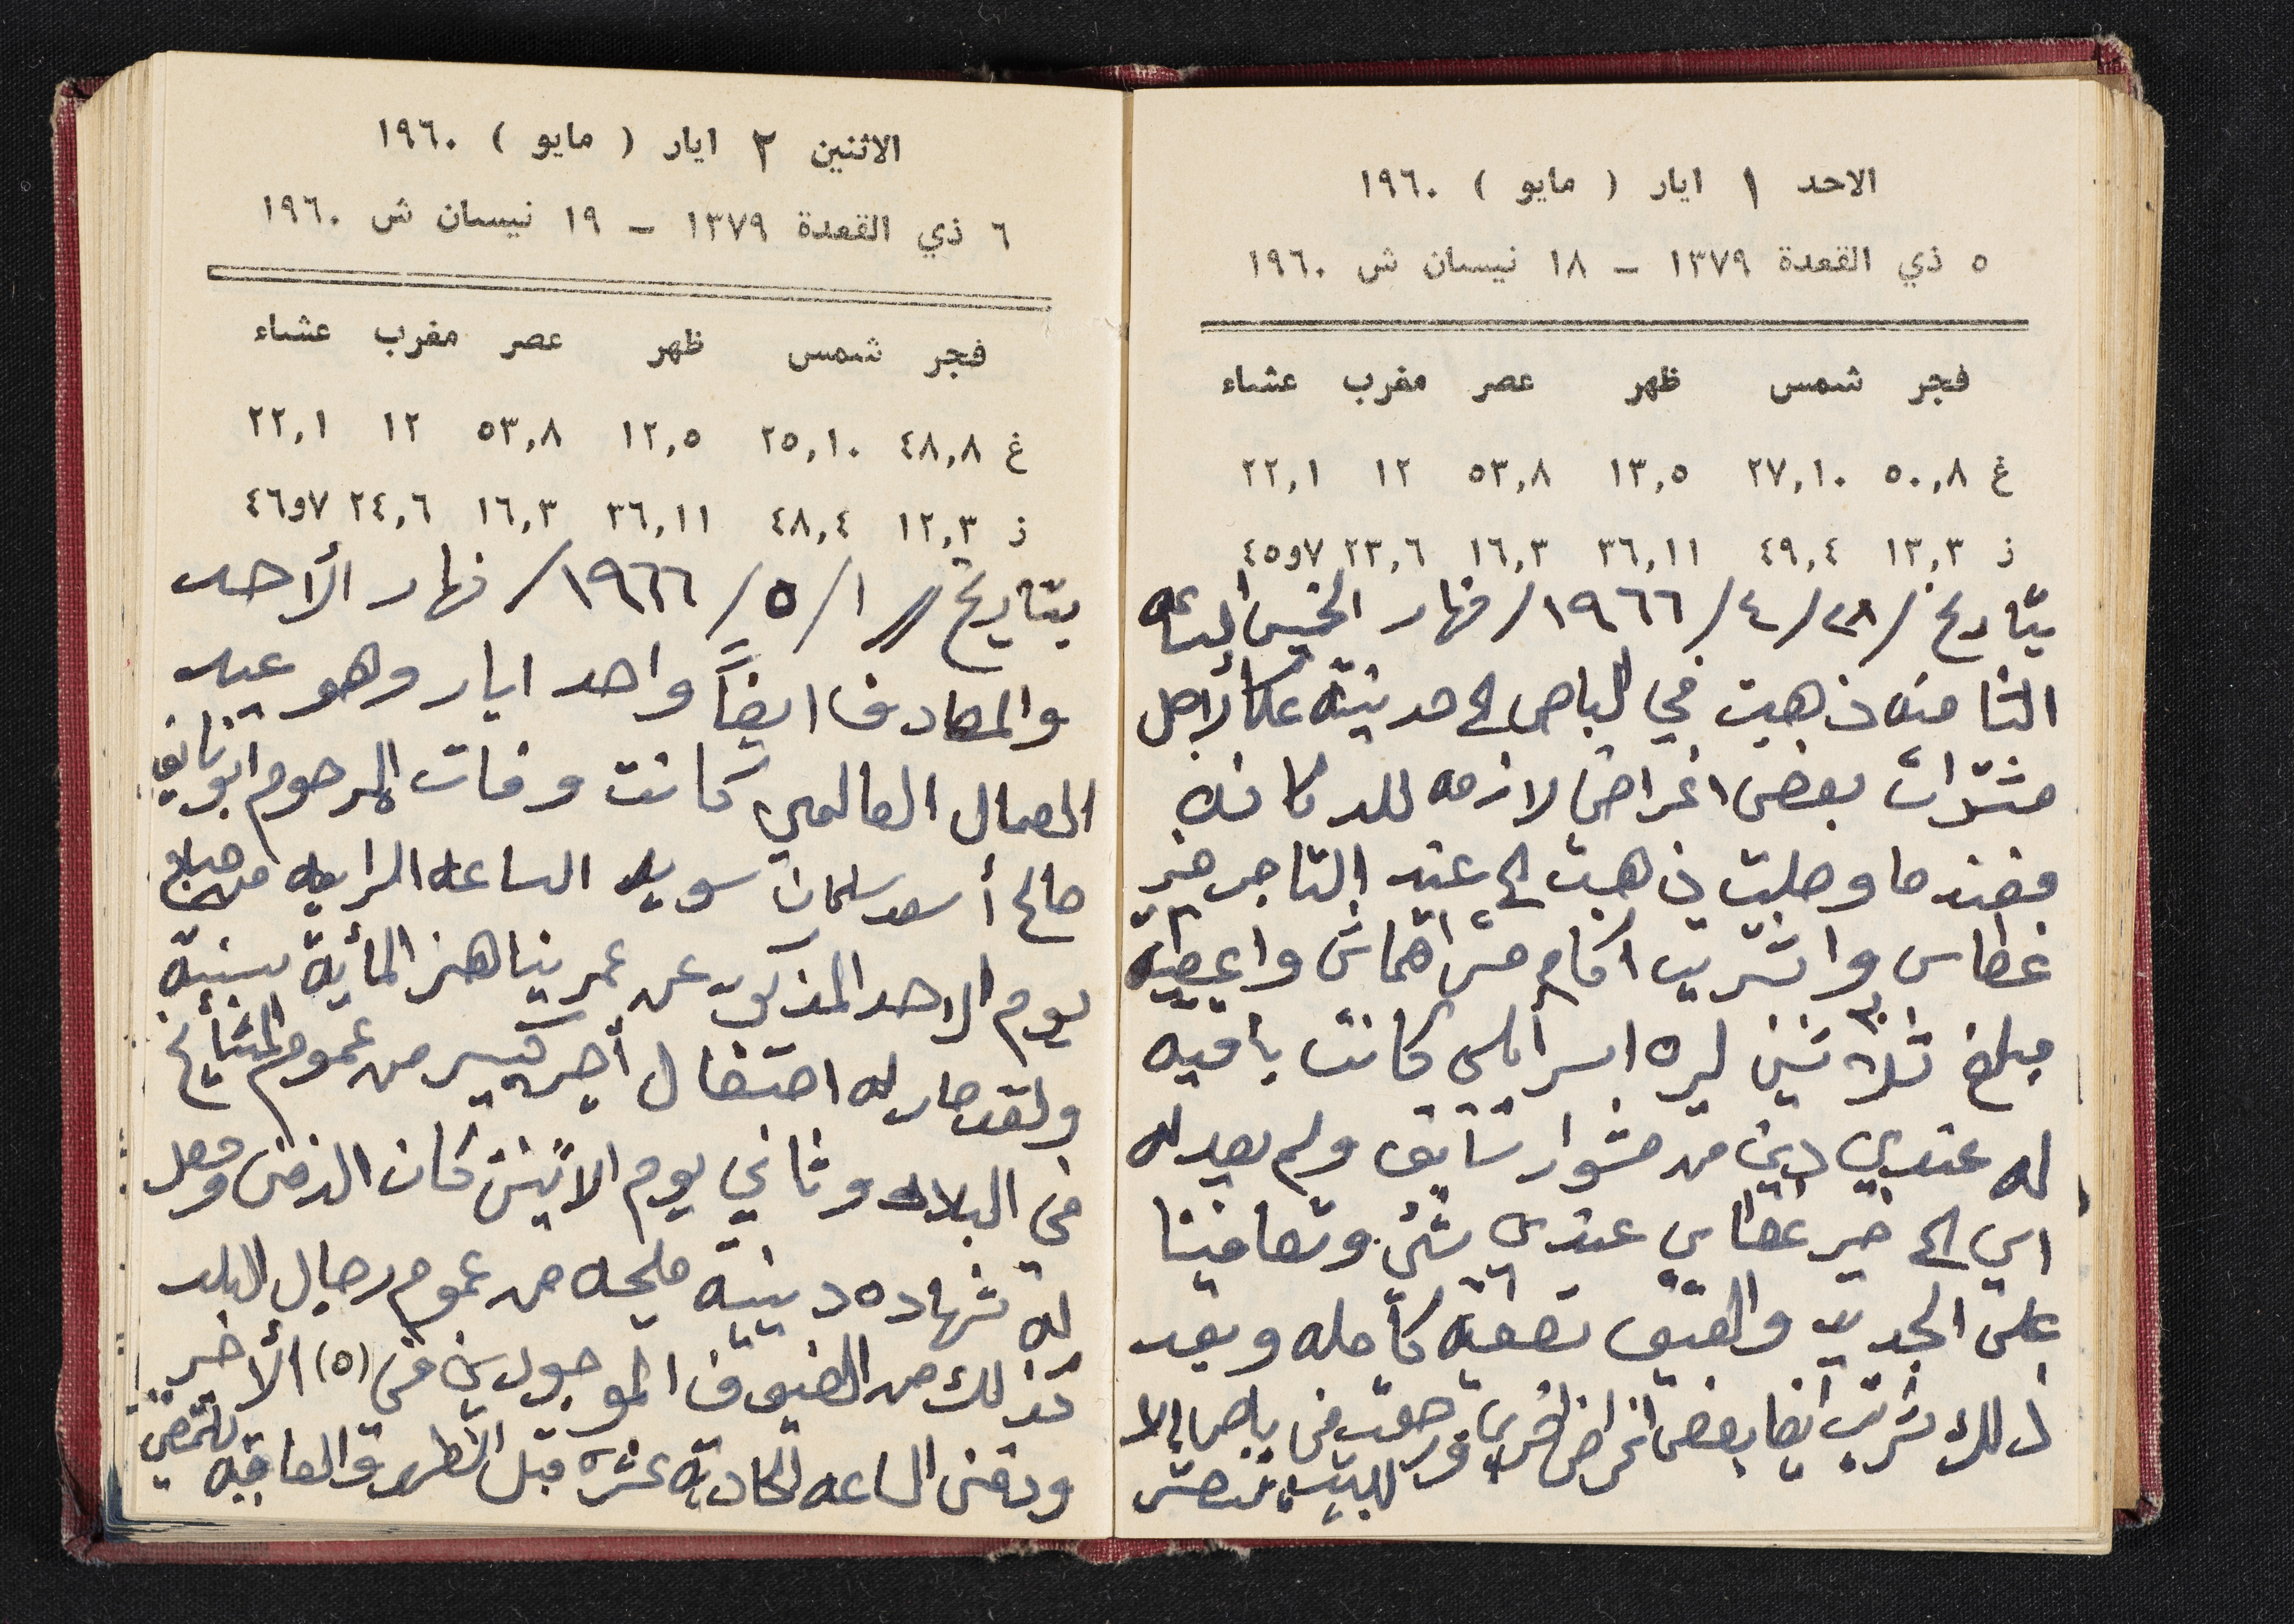 الاحد ١ ايار ( مايو ) ١٩٦٠
٥ ذي القعدة ١٣٧٩ – ١٨ نيسان ش ١٩٦٠
فجر شمس ظهر عصر مغرب عشاء
غ ٥٠,٨ ٢٧,١٠ ١٣,٥ ٥٣,٨ ١٢ ٢٢,١
ز ١٣,٣ ٤٩,٤ ٣٦,١١ ١٦,٣ ٢٣,٦ ٧و٤٥
بتاريخ /٢٨/ ٤/ ١٩٦٦/ نهار الخميس الساعه
الثامنه ذهبت في الباص الى مدينة عكا لأجل
مشترات بعض اغراض لازمه للدكانه
فعندما وصلت ذهبت الى عند التاجر خير
غطاس واشتريت اكام متر اقماش واعطيته
مبلغ ثلاثين ليره اسرائلي كانت باقيه
له عندي دين من مشوار سابق ولم يعد له
اي الى خير غطاس عندي شئ وتصافينا
على الجديد والعتيق تصفية كامله وبعد
ذلك شريت ايضا بعض اغراض اخرى ورجعت في باص إلا
للبيت
الاثنين ٢ ايار ( مايو ) ١٩٦٠
٦ ذي القعدة ١٣٧٩ – ١٩ نيسان ش ١٩٦٠
فجر شمس ظهر عصر مغرب عشاء
غ ٤٨,٨ ٢٥,١٠ ١٢,٥ ٥٣,٨ ١٢ ٢٢,١
ز ١٢,٣ ٤٨,٤ ٣٦,١١ ١٦,٣ ٢٤,٦ ٧و٤٦
بتاريخ // ١/ ٥/ ١٩٦٦/ نهار الأحد
والمصادف ايضاً واحد ايار وهو عيد
العمال العالمي كانت وفات المرحوم ابو نايف
صالح أسعد سلمان سويد الساعه الرابعه من صباح
يوم الاحد المذكور عن عمر يناهز المأية سنة
ولقد صار له احتفال أجر كبير من عموم المشأيخ
في البلاد وثاني يوم الاثنين كان الدفن وحصل
له شهاده دينية مليحه من عموم رجال البلد
كذلك من الضيوف الموجودين في (٥) الأخر
ودفن الساعه الحادية عشره قبل الظهر والعاقبه